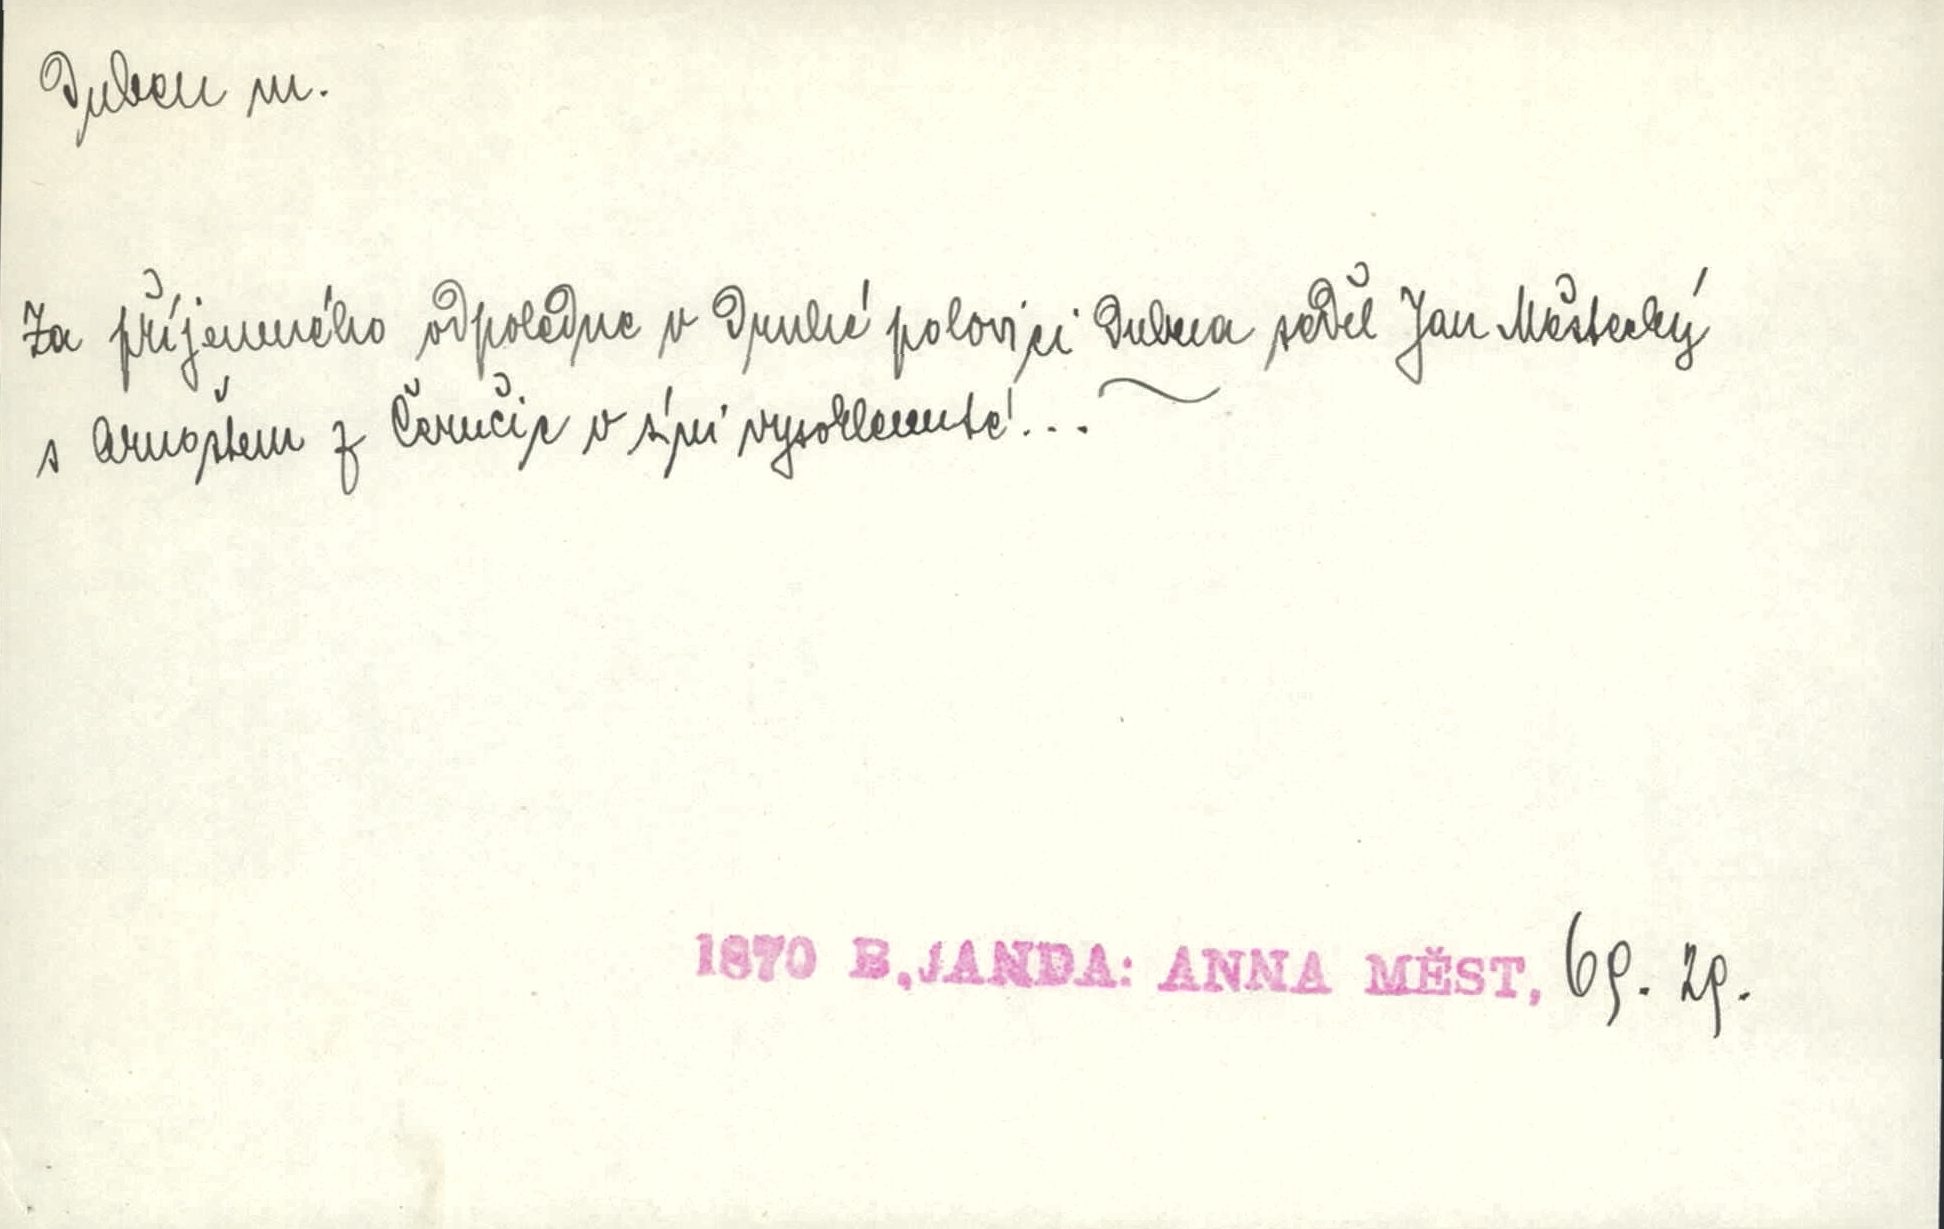 Duben m.
Za příjemného odpoledne v druhé polovici dubna seděl Jan Městecký
s Arnoštem z Černčic v síni vysoklenuté...
1870 B.JANDA: ANNA MĚST, 69. 29.